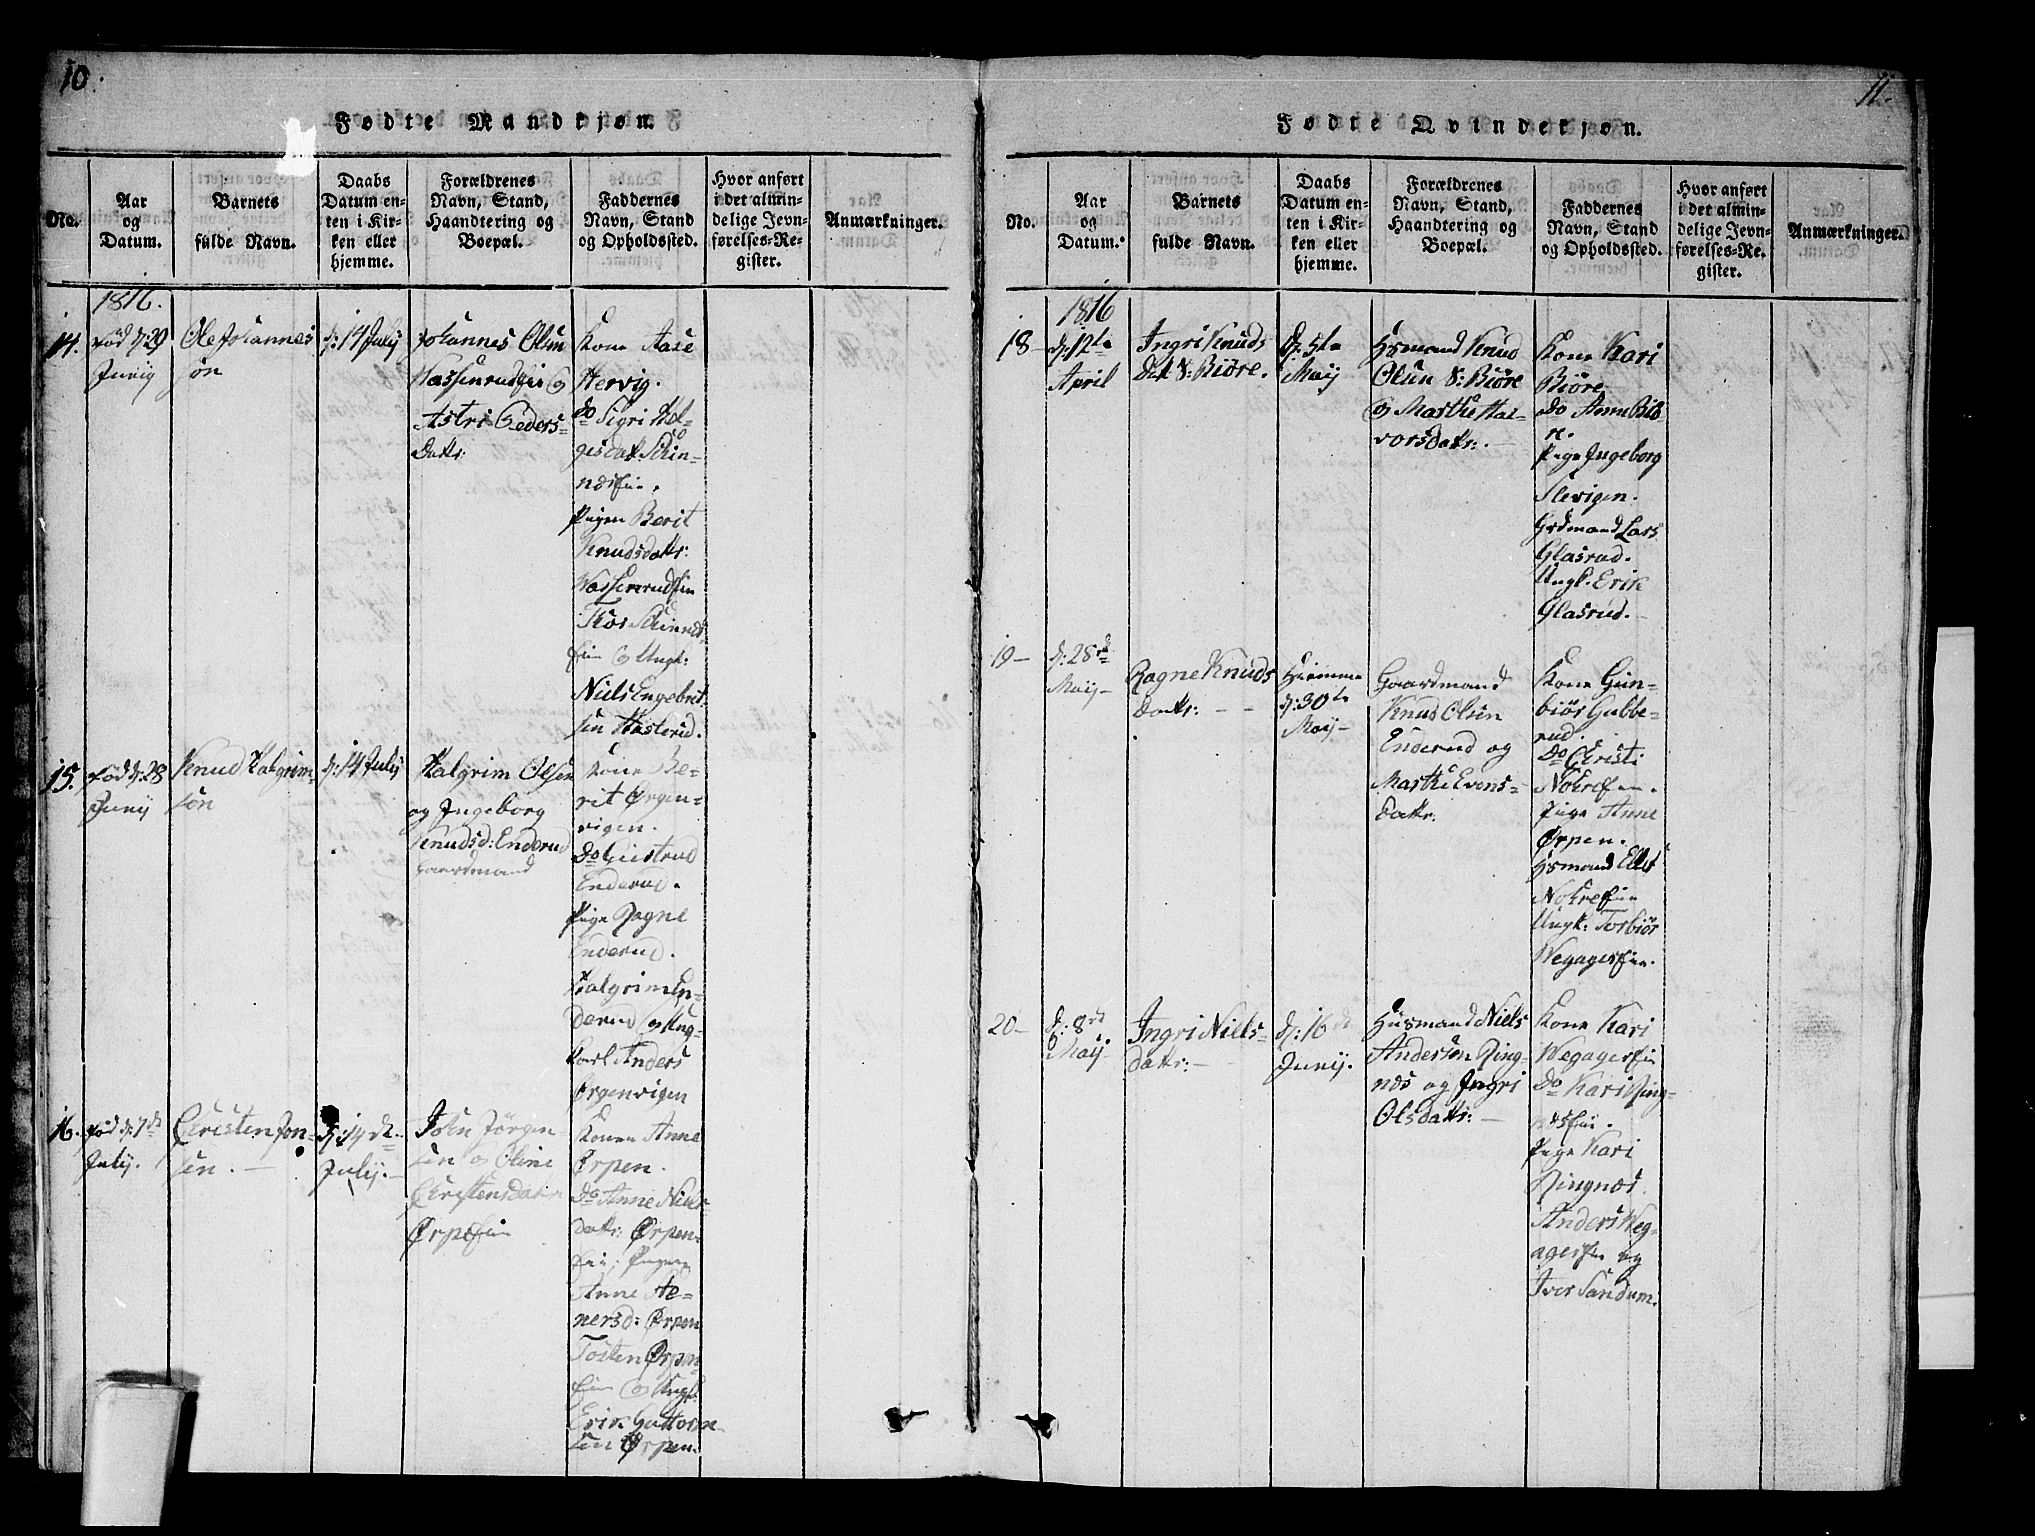 10.
Fødte Mandkjøn.
No.
Aar
og
Datum.
Barnets
fulde Navn.
Daabs
Datum en-
ten i Kir-
ken eller
hjemme.
Forældrenes
Navn, Stand,
Haandtering og
Boepæl.
Faddernes
Navn, Stand
og Opholdssted.
Hvor anført
i det almin-
delige Jevn-
førelses-Re-
gister.
Anmærkninger.
1816.
14.
fød d: 29
Junij
Ole Johannes
søn
d: 14 Julij
Johannes Olsen
og
Astri Peders-
Datr:
Kone Aase
Hervig.
do Sigri Hel-
gisdatr
Pigen Berit
Knudsdatr:
og Ungk:
Niels Engebret-
sen Hasterud.
15.
fød d: 28
Junij
Knud Halgrim-
søn
d: 14 Julij
Halgrim Olsen
og Ingeborg
Knudsd: Enderud
Gaardmand
Kone Be-
rit Ørgen-
vigen.
Do Giertrud
Enderud.
Pige Ragne
Enderud.
Halgrim En-
derud og Ung-
karl Anders
Ørgenvigen
16.
fød d: 7de
Julij.
Christen Jon-
sen.
d: 14de
Julij.
John Jörgen
sen og Oline
Christensdatr
Ørpeeie
Konen Anne
Ørpen.
Do Anne Niels
datr: Ørpen-
eie, Pigen
Anne He-
nersd: Ørpen
Tosten Ørpen-
eie og Ungk:
Erik Guttorm
sen Ørpen.
11.
Fødte Qvindekjøn.
No.
Aar
og
Datum.
Barnets
fulde Navn.
Daabs
Datum en-
ten i Kir-
ken eller
hjemme.
Forældrenes
Navn, Stand,
Haandtering og
Boepæl.
Faddernes
Navn, Stand
og Opholdssted.
Hvor anført
i det almin-
delige Jevn-
førelses-Re-
gister.
Anmærkninger.
1816
18
d: 12te
April
Ingri Knuds
Dat S: Biøre.
D: 5te
Maij
Hsmand Knud
Olsen S: Biøre
og Marthe Hal-
vorsdatr:
Kone Kari
Biøre
Do Anne Biö-
re.
Pige Ingeborg
Slevigen.
Grdmand Lars
Glasrud.
Ungk. Erik
Glasrud.
19
d: 28de
Maij
Ragne Knuds
datr:
Hiemme
d: 30te
Maij
Gaardmand
Knud Olsen
Enderud og
Marthe Evens-
Datr:
Kone Gun-
biör Gubbe-
rud.
Do Christi
Nokreeie.
Pige Anne
Ørpen.
Hsmand Ellef
Nokreeie
Ungk: Torbiör
Wegagereie.
20
d: 8de
Maij
Ingri Niels-
datr:
d: 16de
Junij.
Huusmand Niels
Andersøn Ring-
nes og Ingri
Olsdatr:
Kone Kari
Wegagereie
Do Kari Ring-
neseie.
Pige Kari
Ringnæs.
Anders Weg-
agereie og
Iver Sandum.